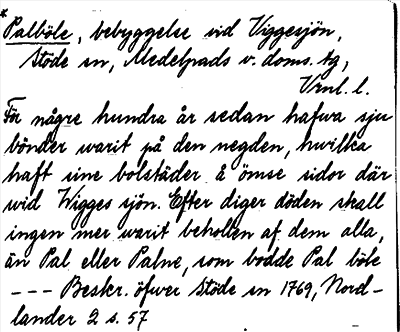 *Palböle, bebyggelse vid Viggesjön,
Stöde sn, Medelpads v. doms. tg,
Vrnl. l.
För några hundra år sedan hafwa sju
bönder warit på den negden, hwilka
haft sine bolstäder å ömse sidor där
wid Wigges sjön. Efter diger döden skall
ingen mer warit behollen af dem alla,
än Pal eller Palne, som bodde Pal böle
--- Beskr. öfwer Stöde sn 1769, Nord-
lander 2 s. 57